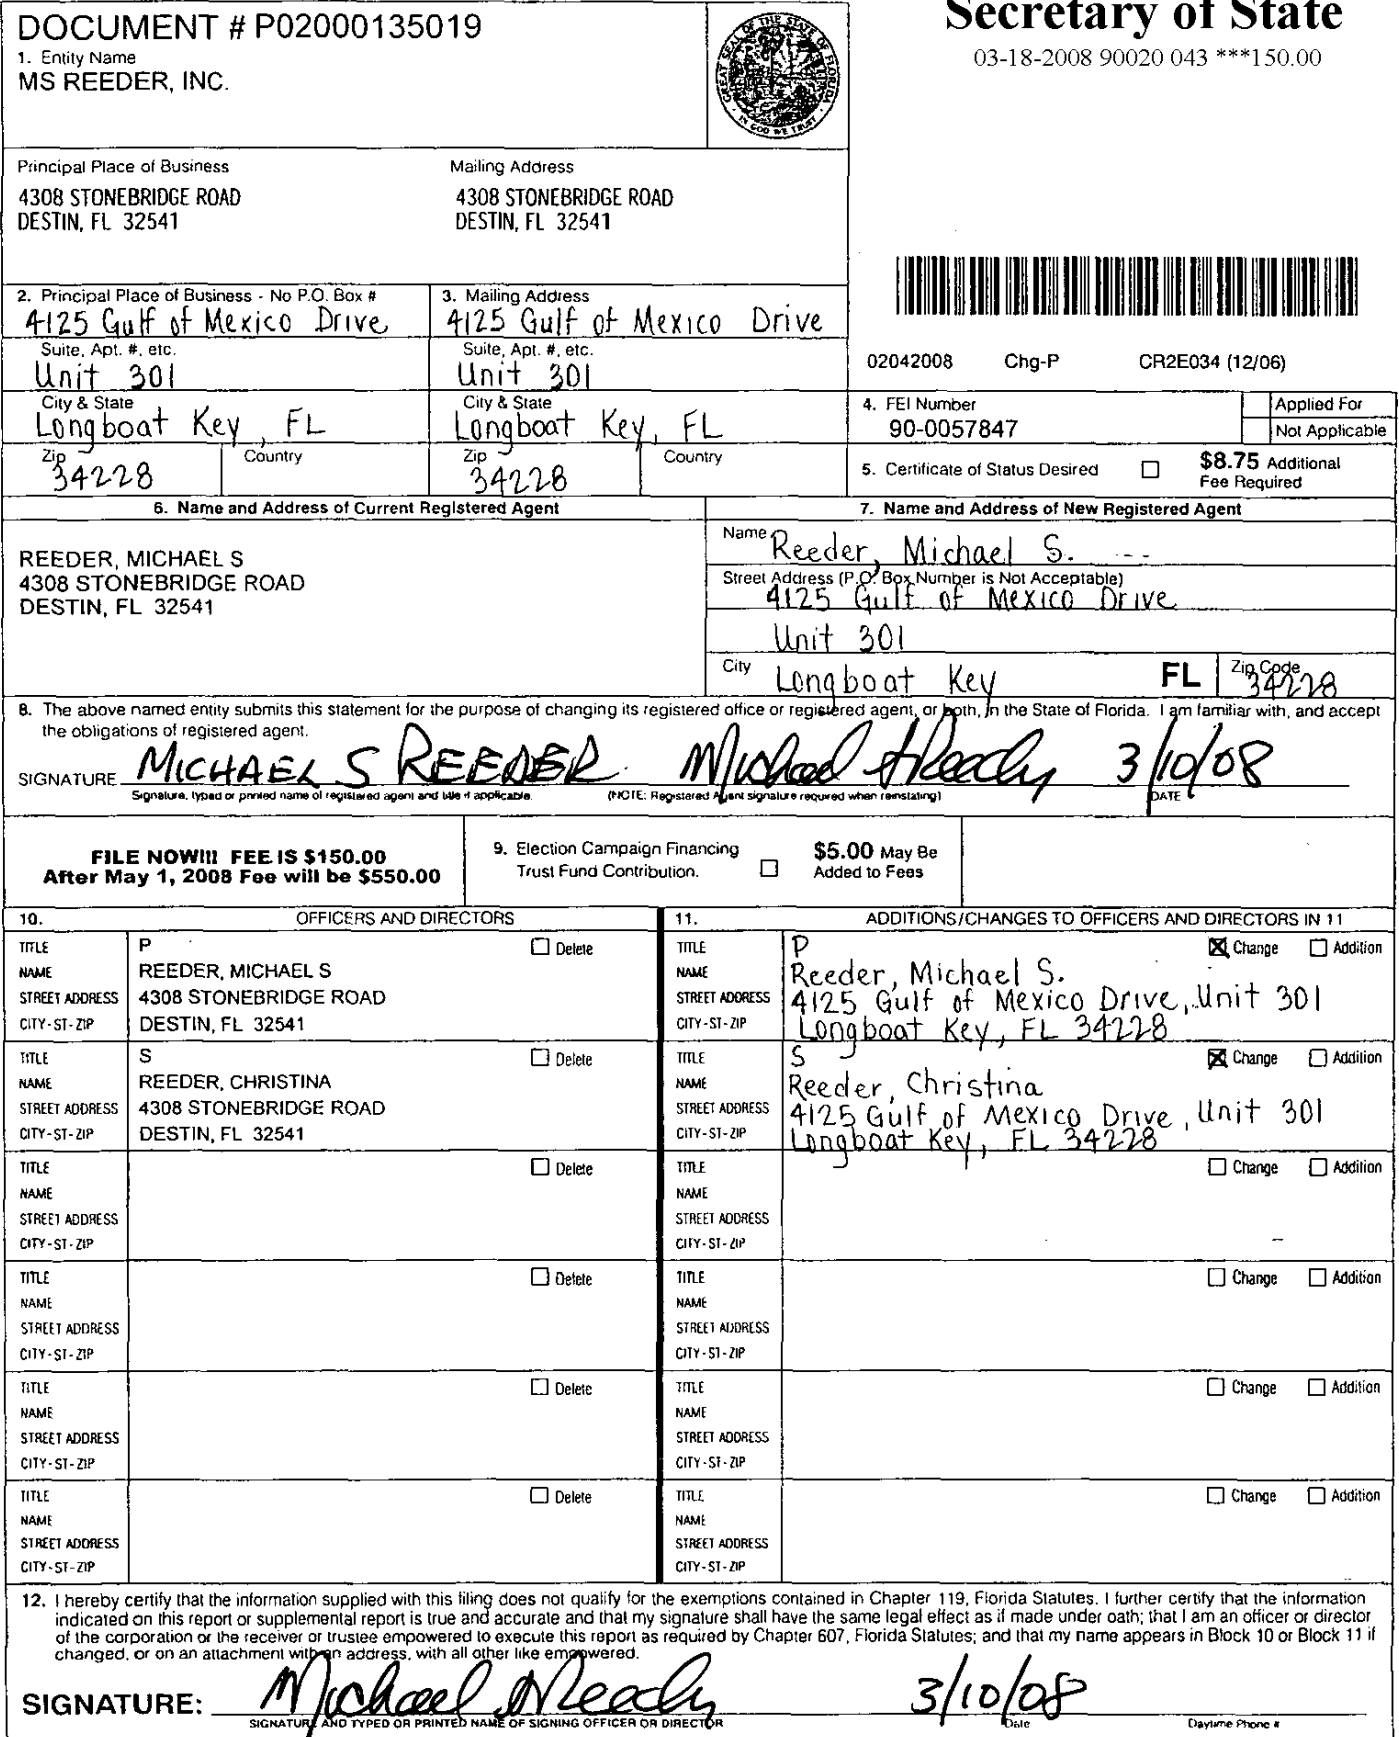 Secretary of State
03-18-2008 90020 043 ***150.00
DOCUMENT # P02000135019
1. Entity Name
MS REEDER, INC.
GREAT SEAL OF THE STATE OF FLORIDA
IN GOD WE TRUST
Principal Place of Business
4308 STONEBRIDGE ROAD
DESTIN, FL 32541
Mailing Address
4308 STONEBRIDGE ROAD
DESTIN, FL 32541
2. Principal Place of Business - No P.O. Box #
4125 Gulf of Mexico Drive
Suite, Apt. #, etc.
Unit 301
City & State
Longboat Key, FL
Zip
34228
Country
3. Mailing Address
4125 Gulf of Mexico Drive
Suite, Apt. #, etc.
Unit 301
City & State
Longboat Key, FL
Zip
34228
Country
02042008 Chg-P CR2E034 (12/06)
4. FEI Number
90-0057847
Applied For
Not Applicable
5. Certificate of Status Desired
$8.75 Additional
Fee Required
6. Name and Address of Current Registered Agent
REEDER, MICHAEL S
4308 STONEBRIDGE ROAD
DESTIN, FL 32541
7. Name and Address of New Registered Agent
Name
Reeder, Michael S.
Street Address (P.O. Box Number is Not Acceptable)
4125 Gulf of Mexico Drive
Unit 301
City
Longboat Key
FL
Zip Code
34228
8. The above named entity submits this statement for the purpose of changing its registered office or registered agent, or both, in the State of Florida. I am familiar with, and accept
the obligations of registered agent.
SIGNATURE MICHAEL S REEDER 3/10/08
Signature, typed or printed name of registered agent and title if applicable. (NOTE: Registered Agent signature required when reinstating) DATE
FILE NOW!!! FEE IS $150.00
After May 1, 2008 Fee will be $550.00
9. Election Campaign Financing
Trust Fund Contribution.
$5.00 May Be
Added to Fees
10. OFFICERS AND DIRECTORS
11. ADDITIONS/CHANGES TO OFFICERS AND DIRECTORS IN 11
TITLE P Delete
NAME REEDER, MICHAEL S
STREET ADDRESS 4308 STONEBRIDGE ROAD
CITY-ST-ZIP DESTIN, FL 32541
TITLE P Change Addition
NAME Reeder, Michael S.
STREET ADDRESS 4125 Gulf of Mexico Drive, Unit 301
CITY-ST-ZIP Longboat Key, FL 34228
TITLE S Delete
NAME REEDER, CHRISTINA
STREET ADDRESS 4308 STONEBRIDGE ROAD
CITY-ST-ZIP DESTIN, FL 32541
TITLE S Change Addition
NAME Reeder, Christina
STREET ADDRESS 4125 Gulf of Mexico Drive, Unit 301
CITY-ST-ZIP Longboat Key, FL 34228
TITLE Delete
NAME
STREET ADDRESS
CITY-ST-ZIP
TITLE Change Addition
NAME
STREET ADDRESS
CITY-ST-ZIP
TITLE Delete
NAME
STREET ADDRESS
CITY-ST-ZIP
TITLE Change Addition
NAME
STREET ADDRESS
CITY-ST-ZIP
TITLE Delete
NAME
STREET ADDRESS
CITY-ST-ZIP
TITLE Change Addition
NAME
STREET ADDRESS
CITY-ST-ZIP
TITLE Delete
NAME
STREET ADDRESS
CITY-ST-ZIP
TITLE Change Addition
NAME
STREET ADDRESS
CITY-ST-ZIP
12. I hereby certify that the information supplied with this filing does not qualify for the exemptions contained in Chapter 119, Florida Statutes. I further certify that the information
indicated on this report or supplemental report is true and accurate and that my signature shall have the same legal effect as if made under oath; that I am an officer or director
of the corporation or the receiver or trustee empowered to execute this report as required by Chapter 607, Florida Statutes; and that my name appears in Block 10 or Block 11 if
changed, or on an attachment with an address, with all other like empowered.
SIGNATURE: 3/10/08
SIGNATURE AND TYPED OR PRINTED NAME OF SIGNING OFFICER OR DIRECTOR Date Daytime Phone #